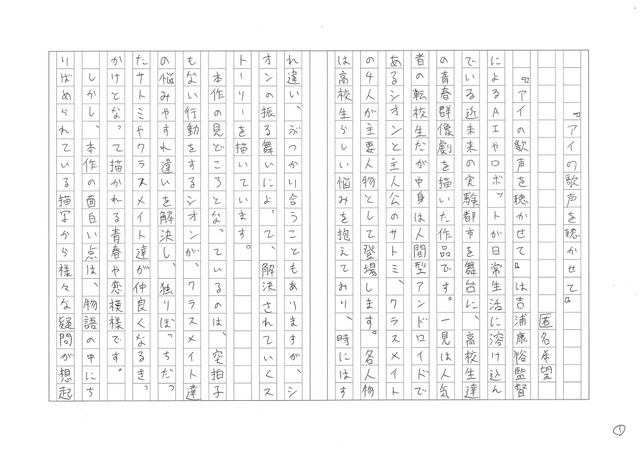 『アイの歌声を聴かせて』
匿名希望
『アイの歌声を聴かせて』は吉浦康裕監督
によるAIやロボットが日常生活に溶け込ん
でいる近未来の実験都市を舞台に、高校生達
の青春群像劇を描いた作品です。一見は人気
者の転校生だが中身は人間型アンドロイドで
あるシオンと主人公のサトミ、クラスメイト
の4人が主要人物として登場します。各人物
は高校生らしい悩みを抱えており、時にはす
れ違い、ぶつかり合うこともありますが、シ
オンの振る舞いによって、解決されていくス
トーリーを描いています。
本作の見どころとなっているのは、突拍子
もない行動をするシオンが、クラスメイト達
の悩みやすれ違いを解決し、独りぼっちだっ
たサトミやクラスメイト達が仲良くなるきっ
かけとなって描かれる青春や恋模様です。
しかし、本作の面白い点は、物語の中にち
りばめられている描写から様々な疑問が想起
①